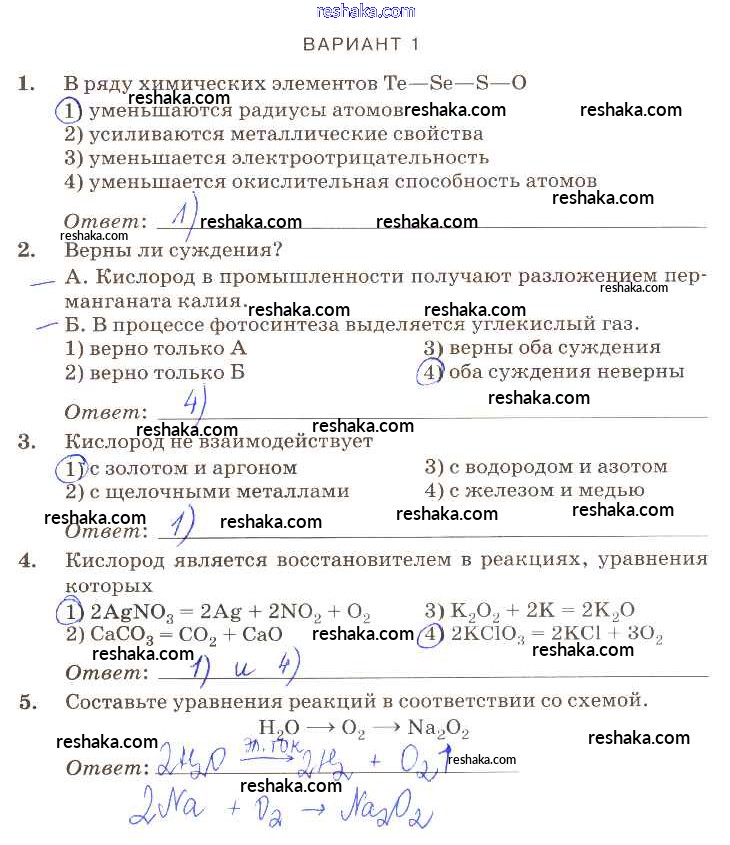 reshaka.com
ВАРИАНТ 1
1. В ряду химических элементов Te—Se—S—O
reshaka.com
1) уменьшаются радиусы атомов reshaka.com reshaka.com
2) усиливаются металлические свойства
3) уменьшается электроотрицательность
4) уменьшается окислительная способность атомов
reshaka.com
Ответ: 1) reshaka.com reshaka.com
reshaka.com
2. Верны ли суждения?
А. Кислород в промышленности получают разложением пер-
reshaka.com
манганата калия. reshaka.com reshaka.com
Б. В процессе фотосинтеза выделяется углекислый газ.
1) верно только А 3) верны оба суждения
2) верно только Б 4) оба суждения неверны
reshaka.com
Ответ: 4)
reshaka.com reshaka.com
3. Кислород не взаимодействует
1) с золотом и аргоном 3) с водородом и азотом
2) с щелочными металлами 4) с железом и медью
reshaka.com reshaka.com reshaka.com reshaka.com
Ответ: 1)
4. Кислород является восстановителем в реакциях, уравнения
которых
1) 2AgNO₃ = 2Ag + 2NO₂ + O₂ 3) K₂O₂ + 2K = 2K₂O
2) CaCO₃ = CO₂ + CaO reshaka.com 4) 2KClO₃ = 2KCl + 3O₂
reshaka.com reshaka.com
Ответ: 1) и 4)
5. Составьте уравнения реакций в соответствии со схемой.
H₂O → O₂ → Na₂O₂
reshaka.com reshaka.com
Ответ: 2H₂O эл. ток → 2H₂ + O₂↑ reshaka.com
2Na + O₂ → Na₂O₂